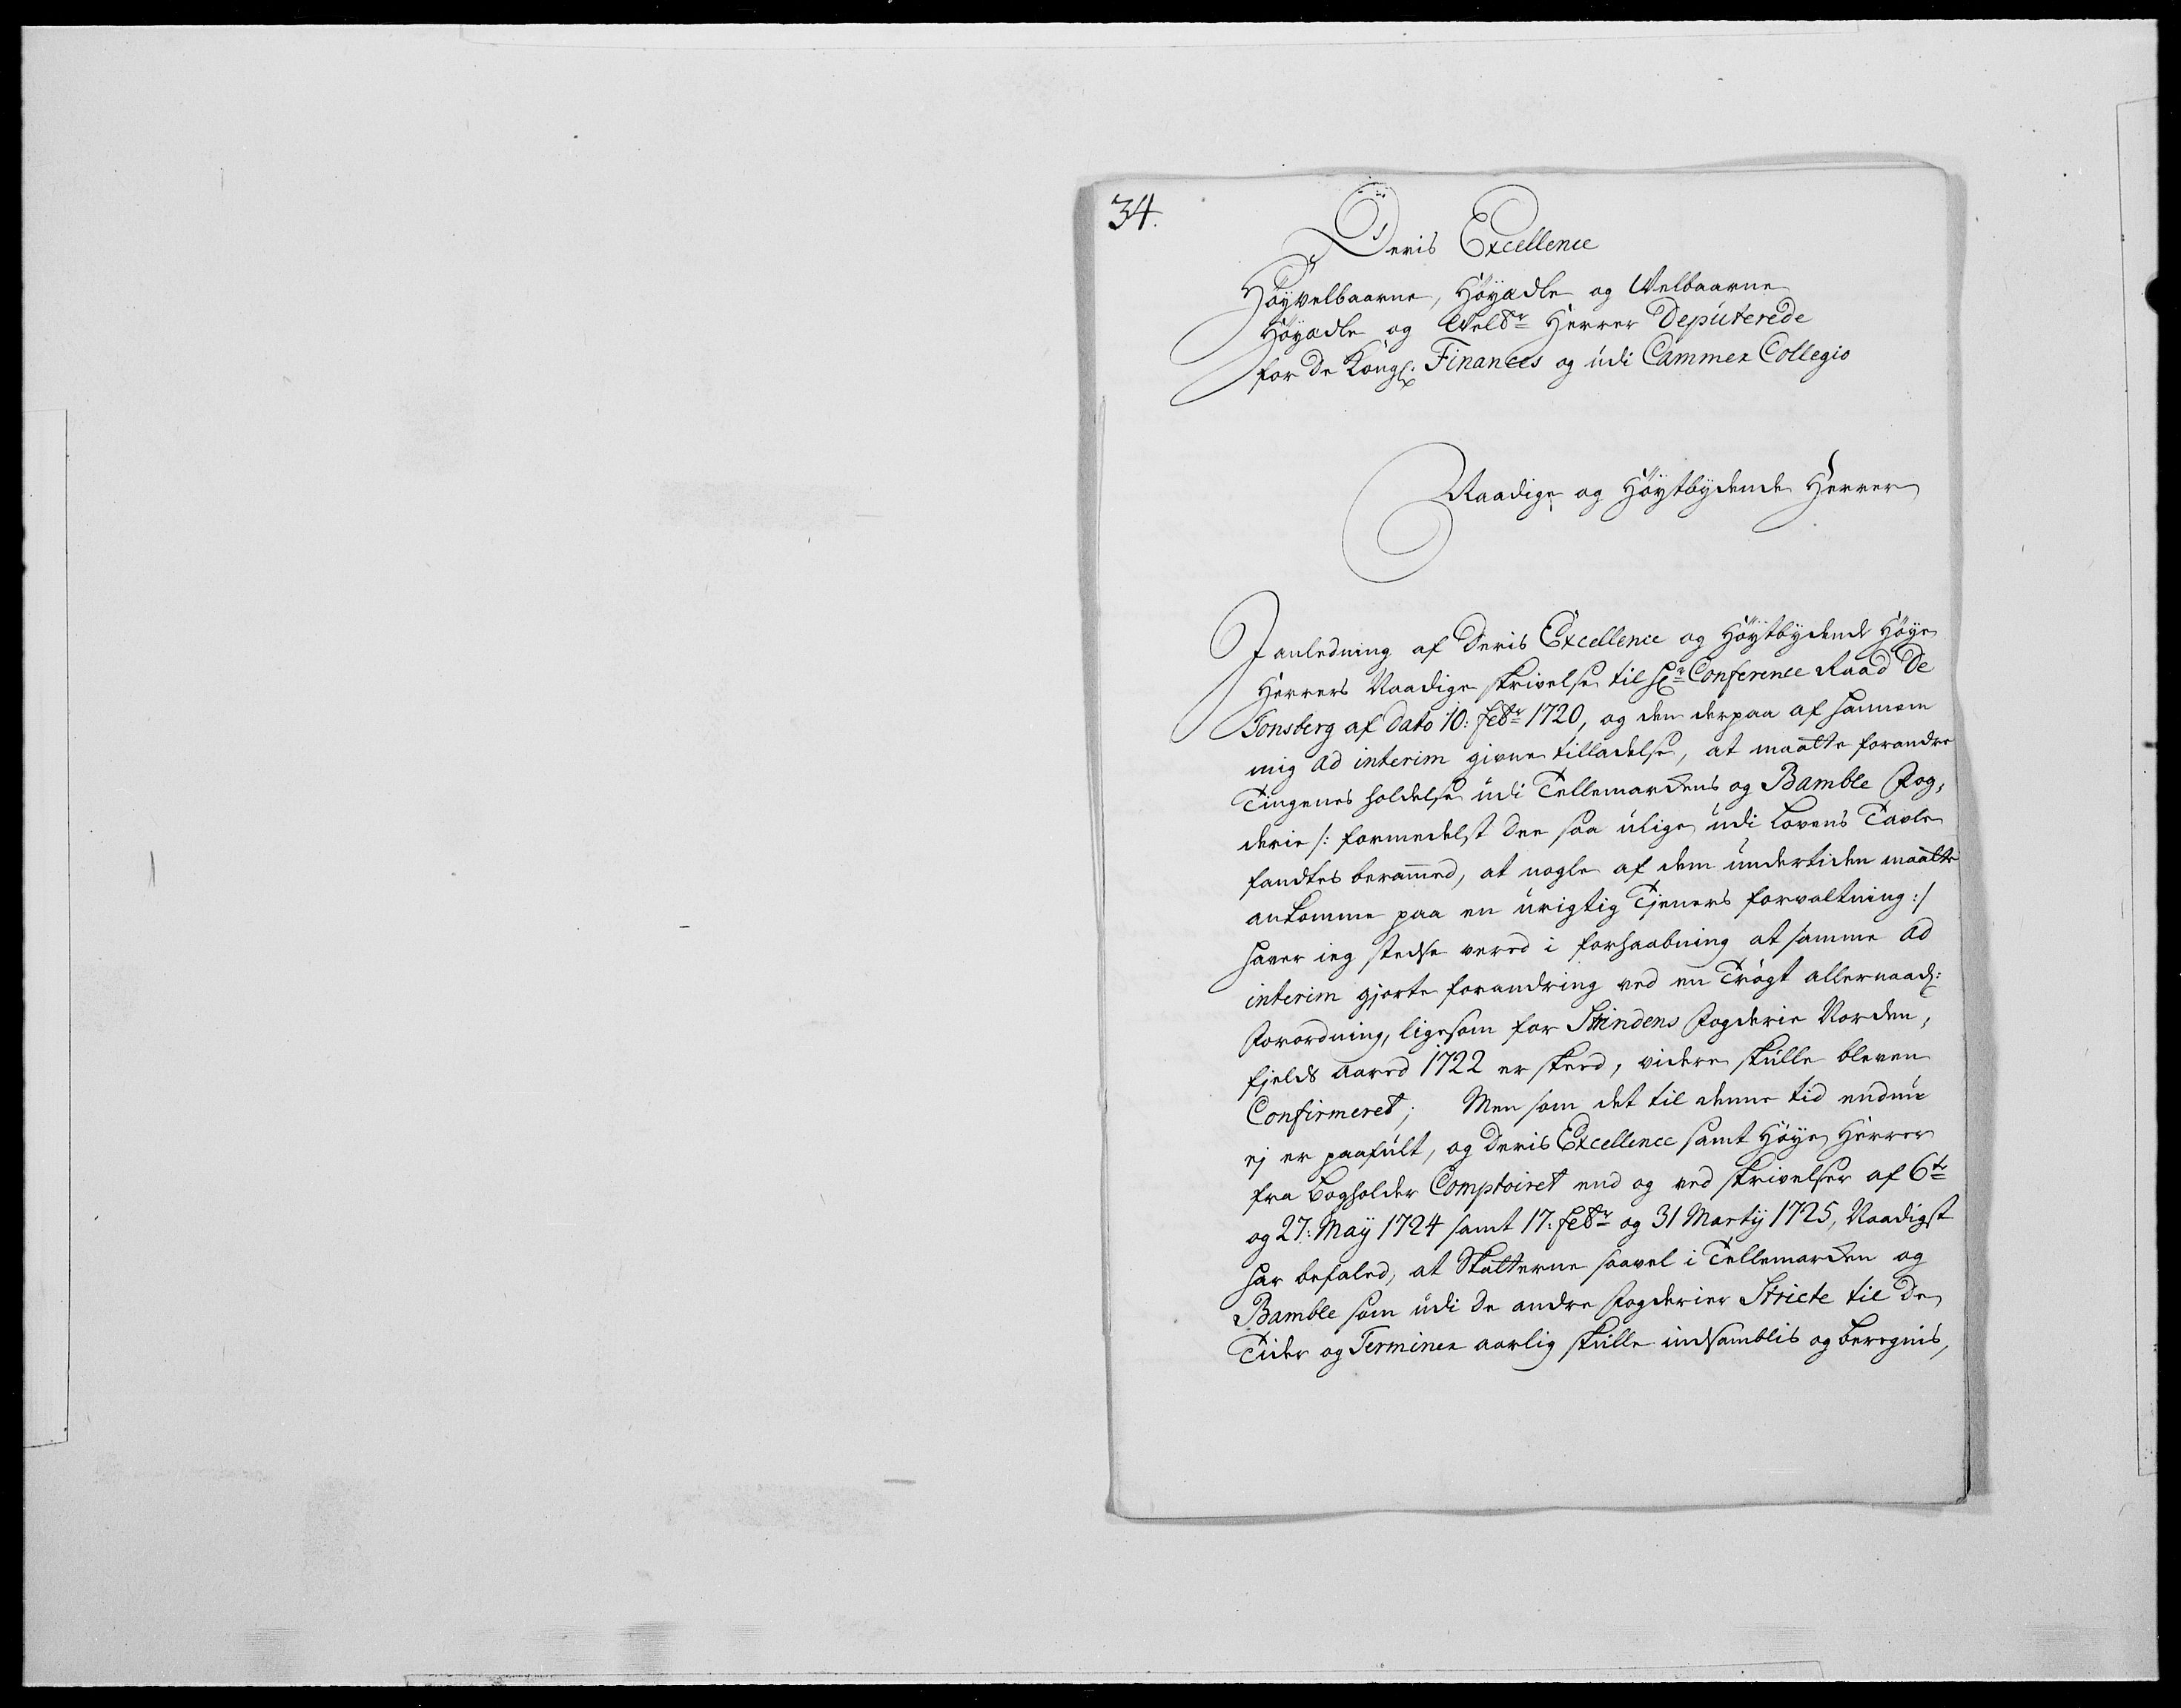 34.
Deris Excellence
Höyvelbaarne, Höyædle og Velbaarne
Höyædle og Velbr Herrer Deputerede
for De Kongl: Finances og udi Cammer Collegio
Naadige og Höytbydende Herrer
I anledning af Deris Excellence og Höytbydende Höye
Herrers Naadige skrivelse til Hr Conference Raad De
Tonsberg af dato 10: febr 1720, og den derpaa af hannem
mig ad interim givne tilladelse, at maatte forandre
Tingenes holdelse udi Tellemarkens og Bamble Fog,
derie /: formedelst dee saa ulige udi Lovens Tavle
fandtes berammed, at nogle af dem undertiden maatte
ankomme paa en urigtig Tjeners forvaltning :/
haver ieg stedse vered i forhaabning at samme ad
interim gjorte forandring ved en Trögt allernaad:
Forordning, ligesom for Strindens Fogderie Norden,
fjelds Aared 1722 er skeed, videre skulle bleven
Confirmeret; Men som det til denne tid endnu
ej er paafult, og Deris Excellence samt Höye Herrer
fra Bogholder Comptoiret end og ved skrivelser af 6te
og 27: Maÿ 1724 samt 17: febr og 31 Martij 1725, Naadigst
har befaled, at Skatterne saavel i Tellemarken og
Bamble som udi de andre Fogderier Stricte til de
Tider og Terminer aarlig skulle indsamblis og beregnis,